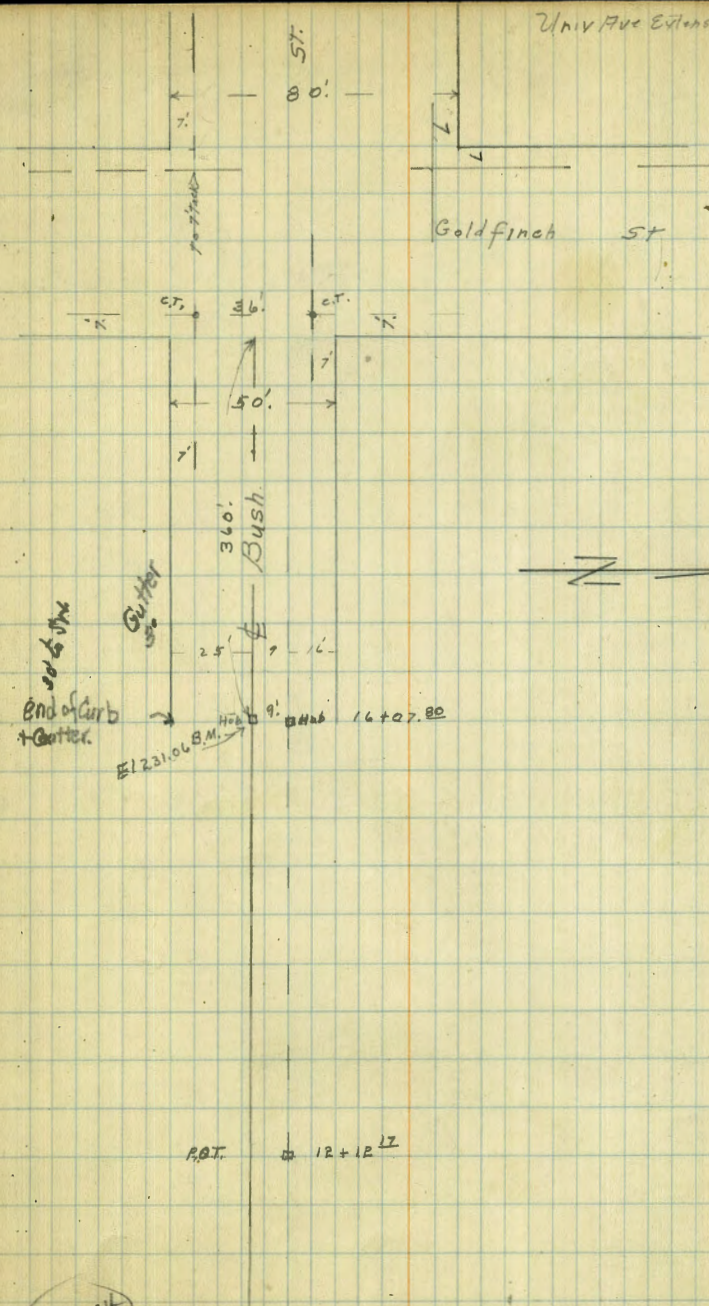 Univ Ave Extens
ST.
80'.
7'.
7
L
Goldfinch St
C.T.
36'.
C.T.
7'.
7'.
7'
50'.
7'
360'.
Bush
Gutter
25'
9
16'
end of Curb
+ Gutter.
Hub
9'.
Hub
16+07.80
El 231.06 B.M.
P.O.T.
12+12 17